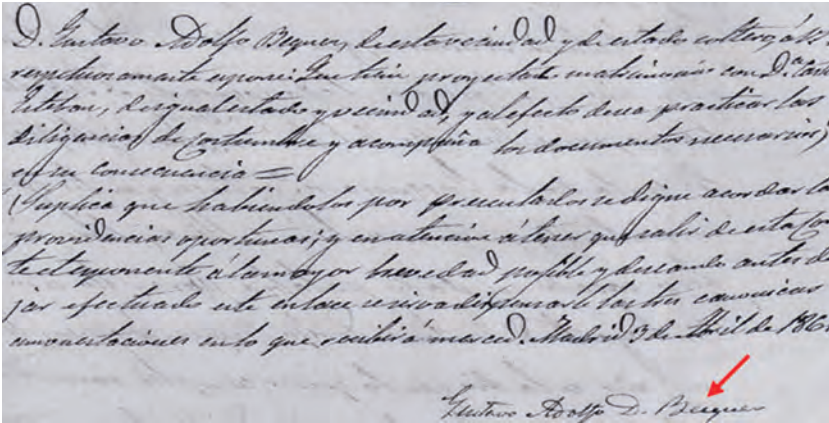 D. Gustavo Adolfo Bequer, de esta vecindad y de estado soltero, á V.
respetuosamente espone: Que tiene proyectado matrimonio con D.ª Casta
Esteban, de igual estado y vecindad, y al efecto desea practicar las
diligencias de costumbre y acompaña los documentos necesarios,
en su consecuencia =
Suplica que habiendolos por presentados se digne acordar la
providencias oportunas; y en atencion á tener que salir de esta Cor
te el esponente á la mayor brevedad posible y deseando antes de
jar efectuado este enlace se sirva dispensarle las tres canonicas
amonestaciones en lo que recibirá merced. Madrid 3 de Abril de 186
Gustavo Adolfo D. Becquer